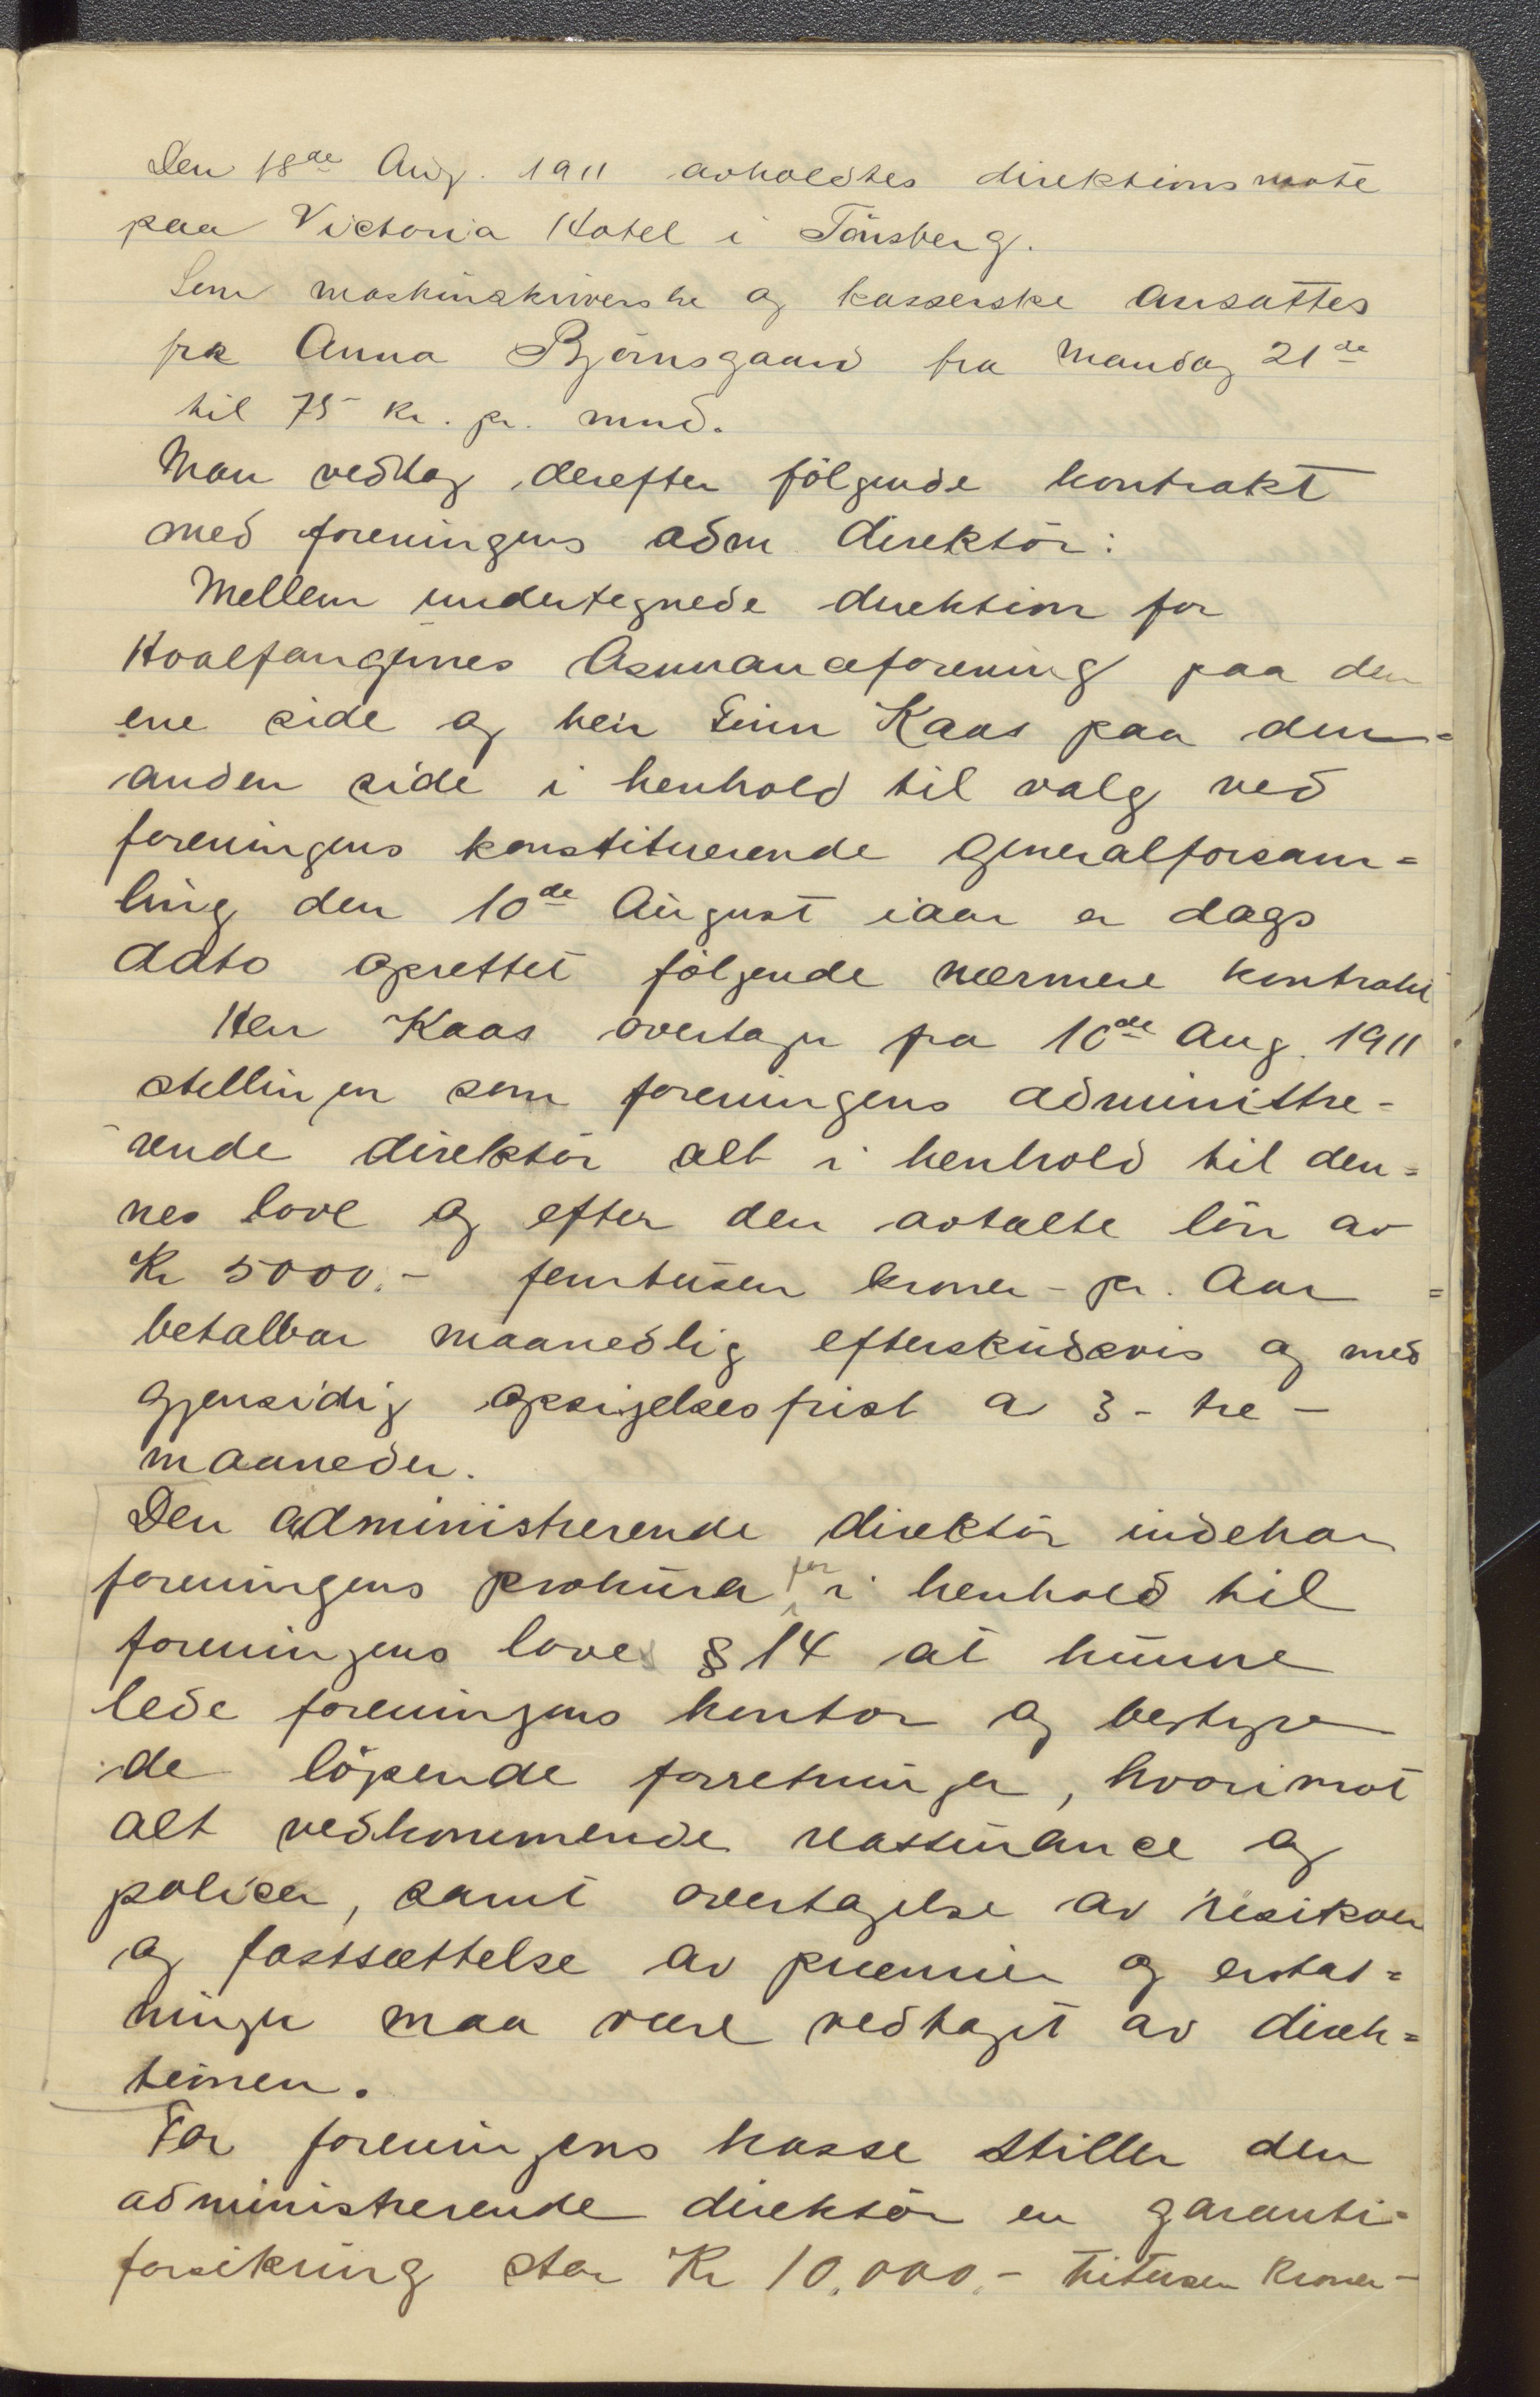 Den 18de Aug. 1911 avholdtes direktionsmøte
paa Victoria Hotel i Tönsberg.
Som maskinskriverske og kasserske ansattes
frk Anna Bjørnsgaard fra Mandag 21de
til 75 kr. pr. mnd.
Man vedtog derefter følgende kontrakt
med foreningens adm direktör:
Mellem undertegnede direktion for
Hvalfangernes Assuranceforening paa den
ene side og herr Finn Kaas paa den =
anden side i henhold til valg ved
foreningens konstituerende generalforsam=
ling den 10de August iaar er dags
dato oprettet følgende nærmere kontrakt
Herr Kaas overtager fra 10de Aug. 1911
stillingen som foreningens administre-
rende direktör alt i henhold til den=
nes love og efter den avtalte lön av
Kr 5000.- femtusen kroner - pr. Aar =
betalbar maanedlig efterskudsvis og med
gjensidig opsigelsesfrist av 3 - tre -
maaneder.
Den administrerende direktör indehar
foreningens prokura for i henhold til
foreningens love § 14 at kunne
lede foreningens kontor og bestyre
de löpende forretninger, hvorimot
alt vedkommende reassurance og
policer, samt overtagelse av risikoer
og fastsættelse av præmier og erstat=
ninger maa være vedtaget av direk=
tionen.
For foreningens kasse stiller den
administrerende direktör en garanti-
forsikring stor Kr 10.000.- titusen Kroner -